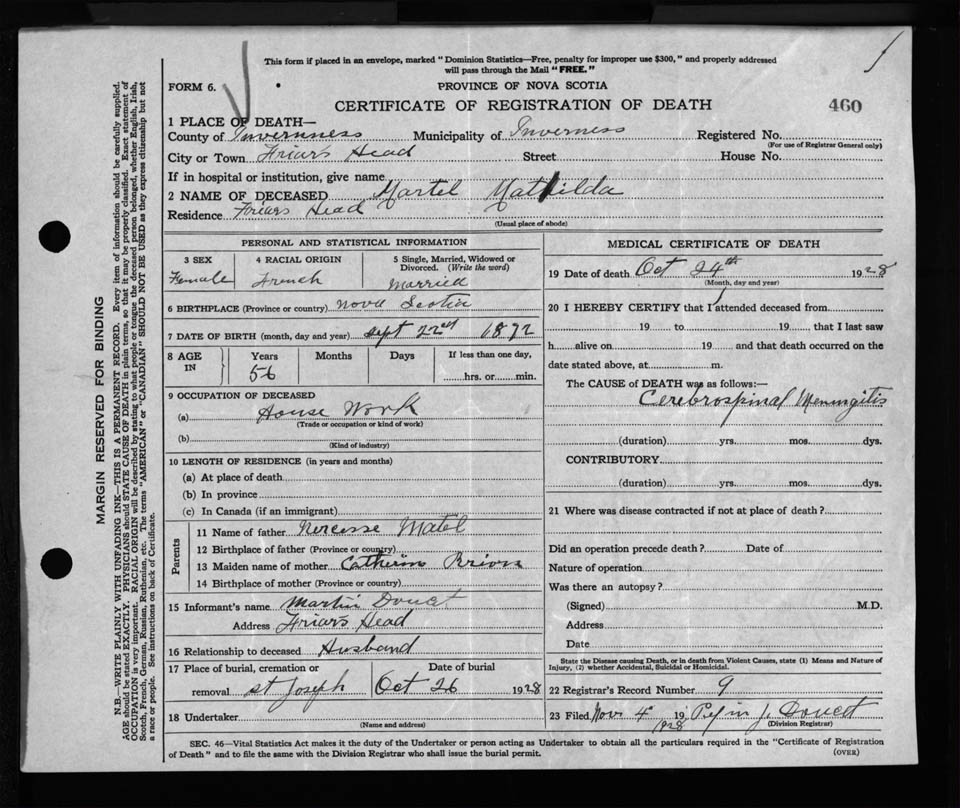 This form if placed in an envelope, marked "Dominion Statistics—Free, penalty for improper use $300," and properly addressed
will pass through the Mail "FREE."
FORM 6.
PROVINCE OF NOVA SCOTIA
CERTIFICATE OF REGISTRATION OF DEATH
460
1 PLACE OF DEATH—
County of Invernness Municipality of Inverness Registered No.
(For use of Registrar General only)
City or Town Friar's Head Street House No.
If in hospital or institution, give name
2 NAME OF DECEASED Martel Mathilda
Residence Friars Head
(Usual place of abode)
PERSONAL AND STATISTICAL INFORMATION
3 SEX 4 RACIAL ORIGIN 5 Single, Married, Widowed or
Divorced. (Write the word)
Female French Married
6 BIRTHPLACE (Province or country) Nova Scotia
7 DATE OF BIRTH (month, day and year) Sept 22nd 1872
8 AGE IN Years Months Days If less than one day,
56 hrs. or min.
9 OCCUPATION OF DECEASED
(a) House Work
(Trade or occupation or kind of work)
(b)
(Kind of industry)
10 LENGTH OF RESIDENCE (in years and months)
(a) At place of death
(b) In province
(c) In Canada (if an immigrant)
Parents
11 Name of father Matel
12 Birthplace of father (Province or country)
13 Maiden name of mother Catherine
14 Birthplace of mother (Province or country)
15 Informant's name Martin Doucet
Address Friar's Head
16 Relationship to deceased Husband
17 Place of burial, cremation or Date of burial
removal St Joseph Oct 26 1928
18 Undertaker
(Name and address)
MEDICAL CERTIFICATE OF DEATH
19 Date of death Oct 24th 1928
(Month, day and year)
20 I HEREBY CERTIFY that I attended deceased from
19 to 19 that I last saw
h alive on 19 and that death occurred on the
date stated above, at m.
The CAUSE of DEATH was as follows:—
Cerebrospinal Meningitis
(duration) yrs. mos. dys.
CONTRIBUTORY
(duration) yrs. mos. dys.
21 Where was disease contracted if not at place of death?
Did an operation precede death? Date of
Nature of operation
Was there an autopsy?
(Signed) M.D.
Address
Date
State the Disease causing Death, or in death from Violent Causes, state (1) Means and Nature of
Injury, (2) whether Accidental, Suicidal or Homicidal.
22 Registrar's Record Number 9
23 Filed Nov 4 19 J. Doucet
1928 (Division Registrar)
SEC. 46—Vital Statistics Act makes it the duty of the Undertaker or person acting as Undertaker to obtain all the particulars required in the "Certificate of Registration
of Death" and to file the same with the Division Registrar who shall issue the burial permit.
(OVER)
MARGIN RESERVED FOR BINDING
N.B.—WRITE PLAINLY WITH UNFADING INK—THIS IS A PERMANENT RECORD. Every item of information should be carefully supplied.
AGE should be stated EXACTLY. PHYSICIANS should STATE CAUSE OF DEATH in plain terms, so that it may be properly classified. Exact statement of
OCCUPATION is very important. RACIAL ORIGIN will be described by stating to what people or tongue the deceased person belonged, whether English, Irish,
Scotch, French, German, Russian, Ruthenian, etc. The terms "AMERICAN" or "CANADIAN" SHOULD NOT BE USED as they express citizenship but not
a race or people. See instructions on back of Certificate.